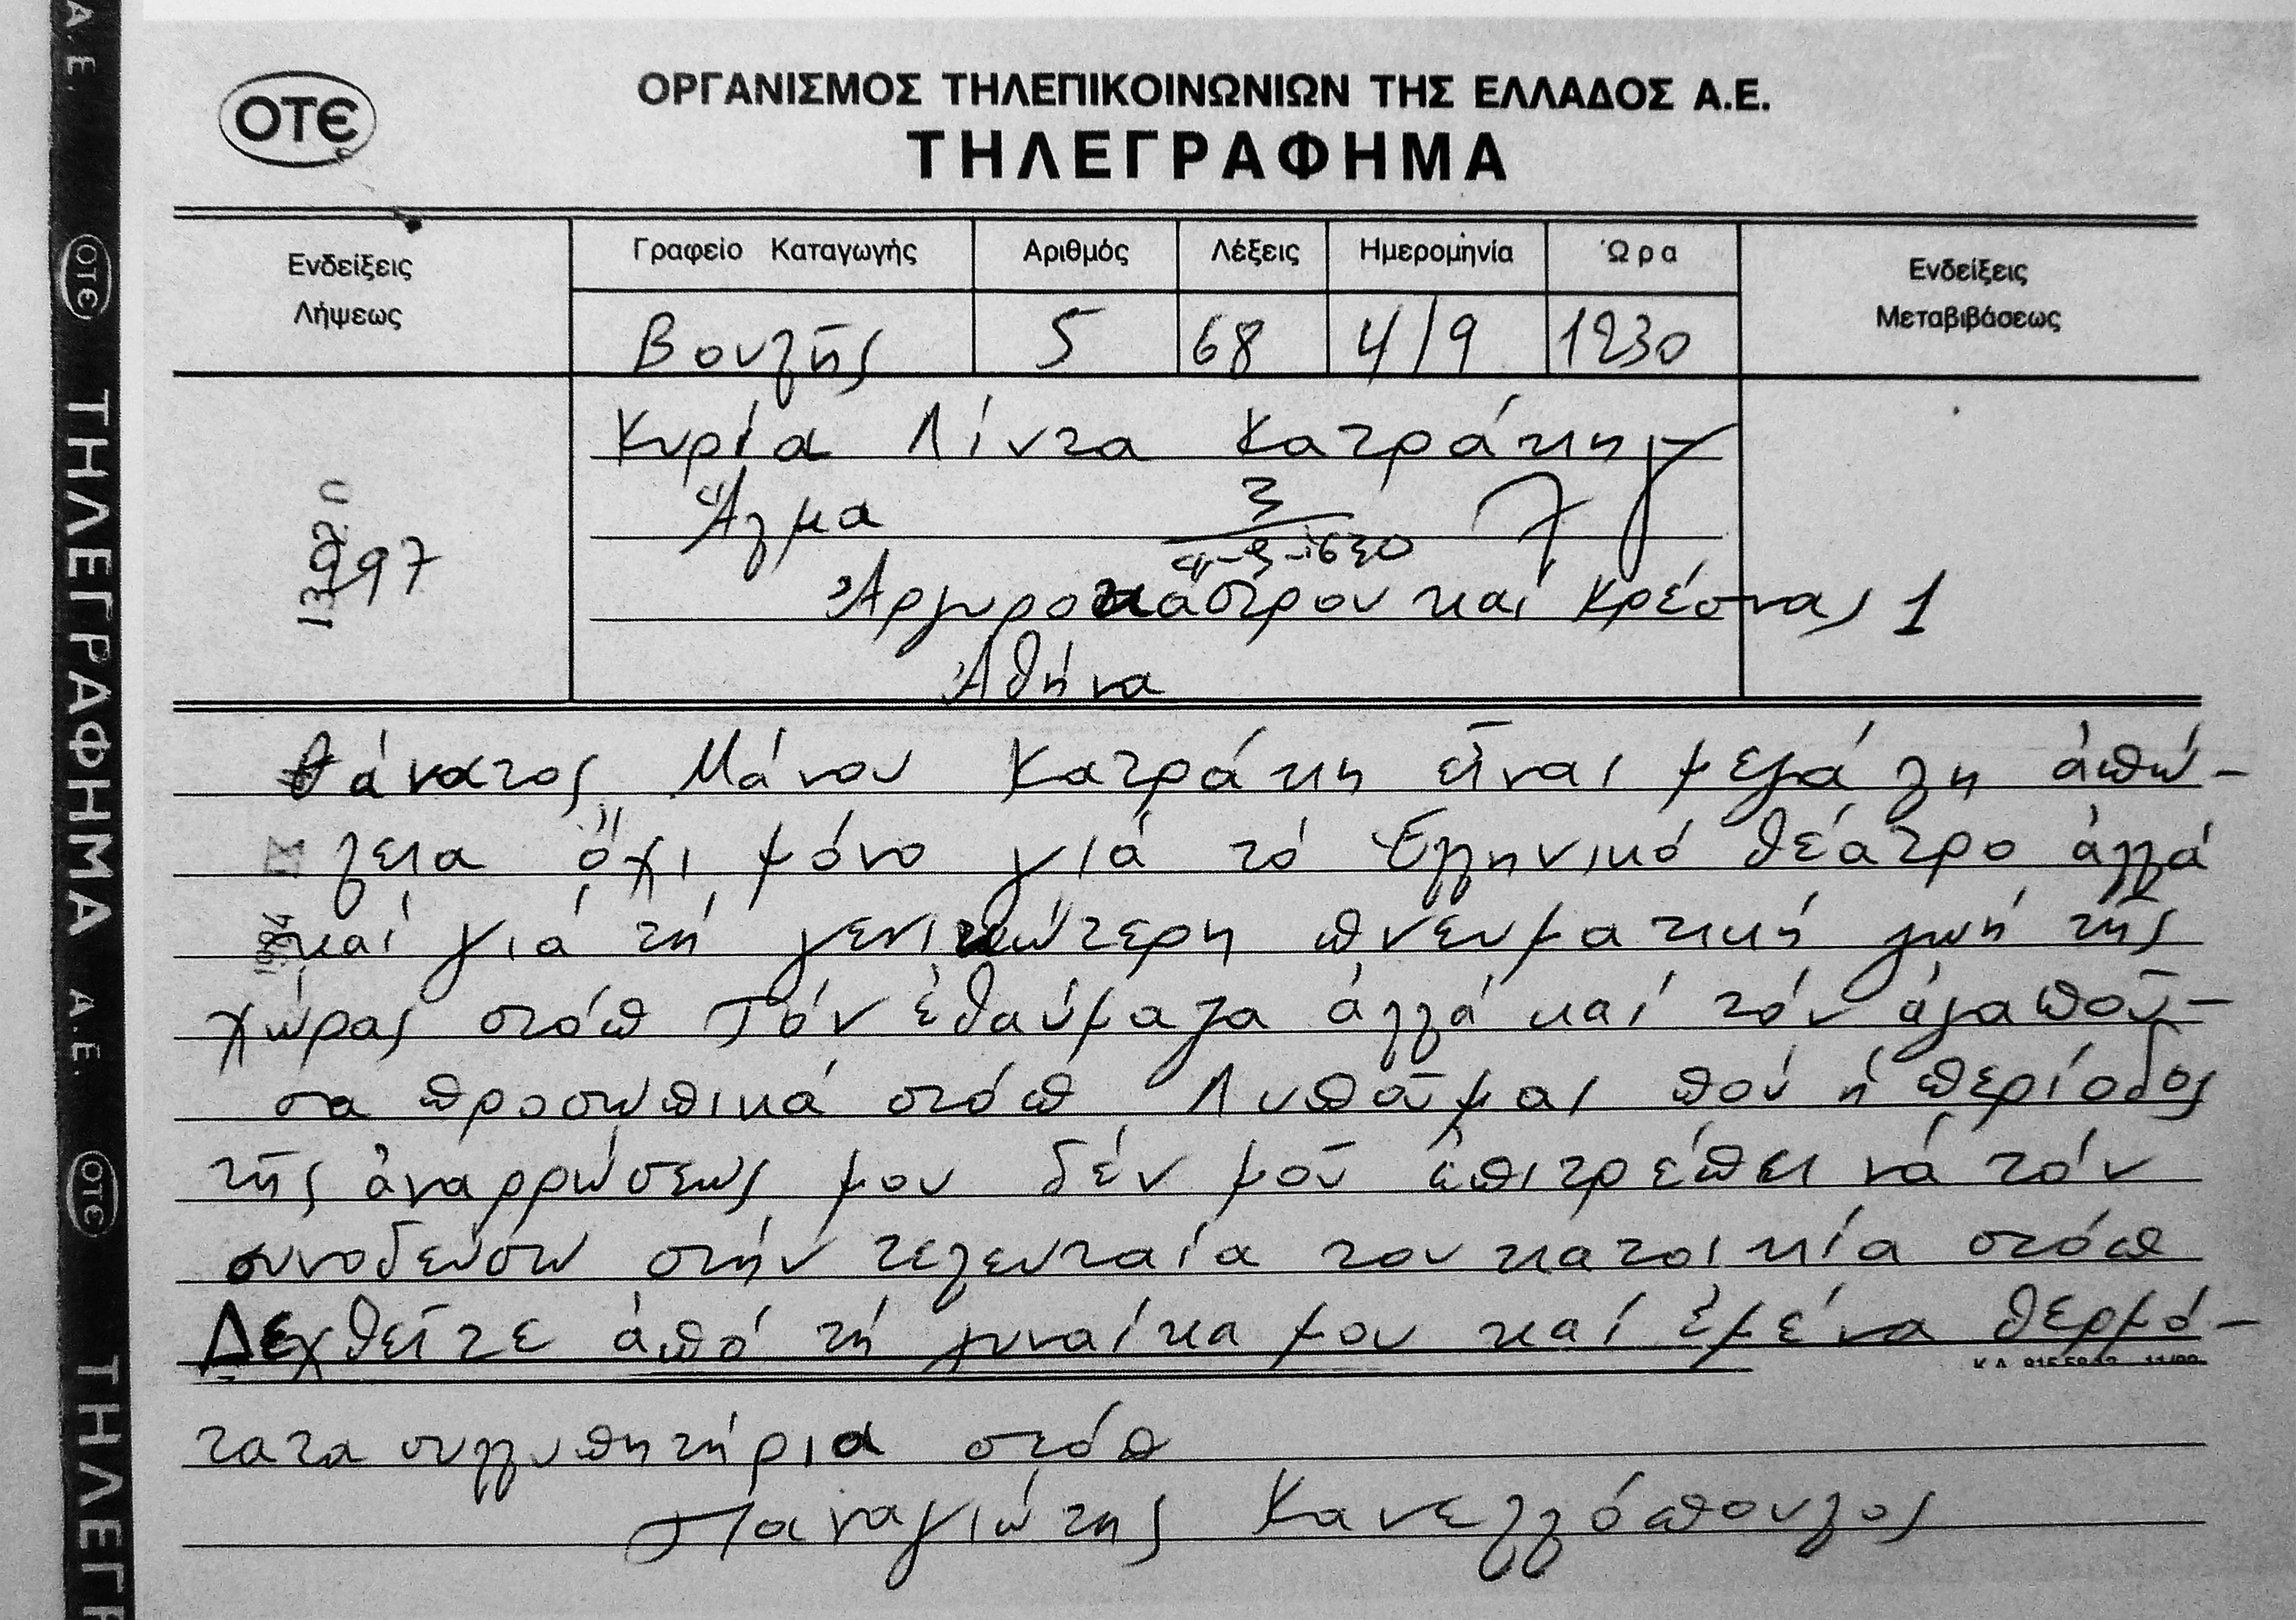 Α.Ε. ΟΤΕ ΤΗΛΕΓΡΑΦΗΜΑ Α.Ε. ΟΤΕ ΤΗΛΕΓΡ
ΟΤΕ
ΟΡΓΑΝΙΣΜΟΣ ΤΗΛΕΠΙΚΟΙΝΩΝΙΩΝ ΤΗΣ ΕΛΛΑΔΟΣ Α.Ε.
ΤΗΛΕΓΡΑΦΗΜΑ
Ενδείξεις
Λήψεως
Γραφείο Καταγωγής
Αριθμός
Λέξεις
Ημερομηνία
Ώρα
Ενδείξεις
Μεταβιβάσεως
Βουλῆς
5
68
4/9
1230
Κυρία Λίντα Κατράκη
Ἅλμα
997
Ἀργυροκάστρου καί Κρέσνας 1
Ἀθήνα
Θάνατος Μάνου Κατράκη εἶναι μεγάλη ἀπώ-
λεια ὄχι μόνο γιά τό Ἑλληνικό θέατρο ἀλλά
καί γιά τή γενικώτερη πνευματική ζωή τῆς
χώρας στόπ Τόν ἐθαύμαζα ἀλλά καί τόν ἀγαποῦ-
σα προσωπικά στόπ Λυπᾶμαι πού ἡ περίοδος
τῆς ἀναρρώσεως μου δέν μοῦ ἐπιτρέπει νά τόν
συνοδεύσω στήν τελευταία του κατοικία στόπ
Δεχθεῖτε ἀπό τή γυναίκα μου καί ἐμένα θερμό-
τατα συλλυπητήρια στόπ
Παναγιώτης Κανελλόπουλος